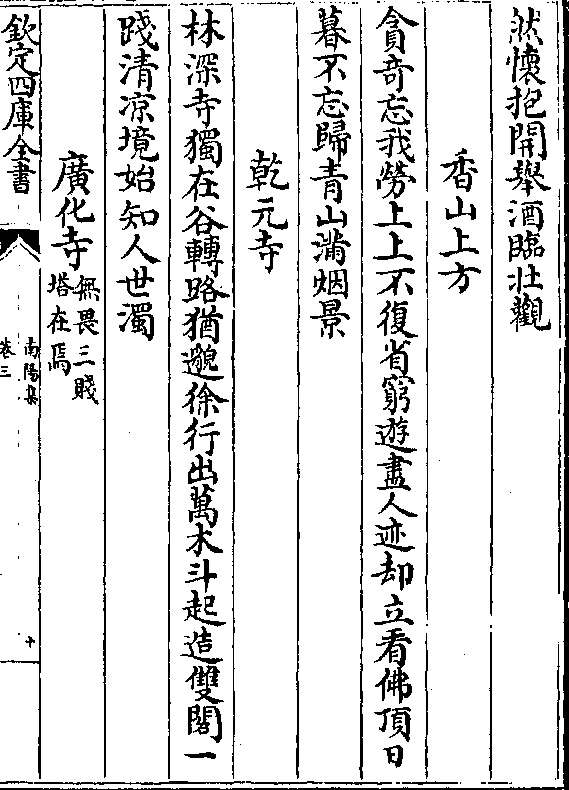 然懷抱開舉酒臨壯觀
香山上方
貪奇忘我勞上上不復省窮遊盡人迹却立看佛頂日
暮不忘歸青山滿烟景
乾元寺
林深寺獨在谷轉路猶邈徐行出萬木斗起造雙閣一
踐清凉境始知人世濁
廣化寺無畏三賤塔在焉
欽定四庫全書
南陽集
卷三
十